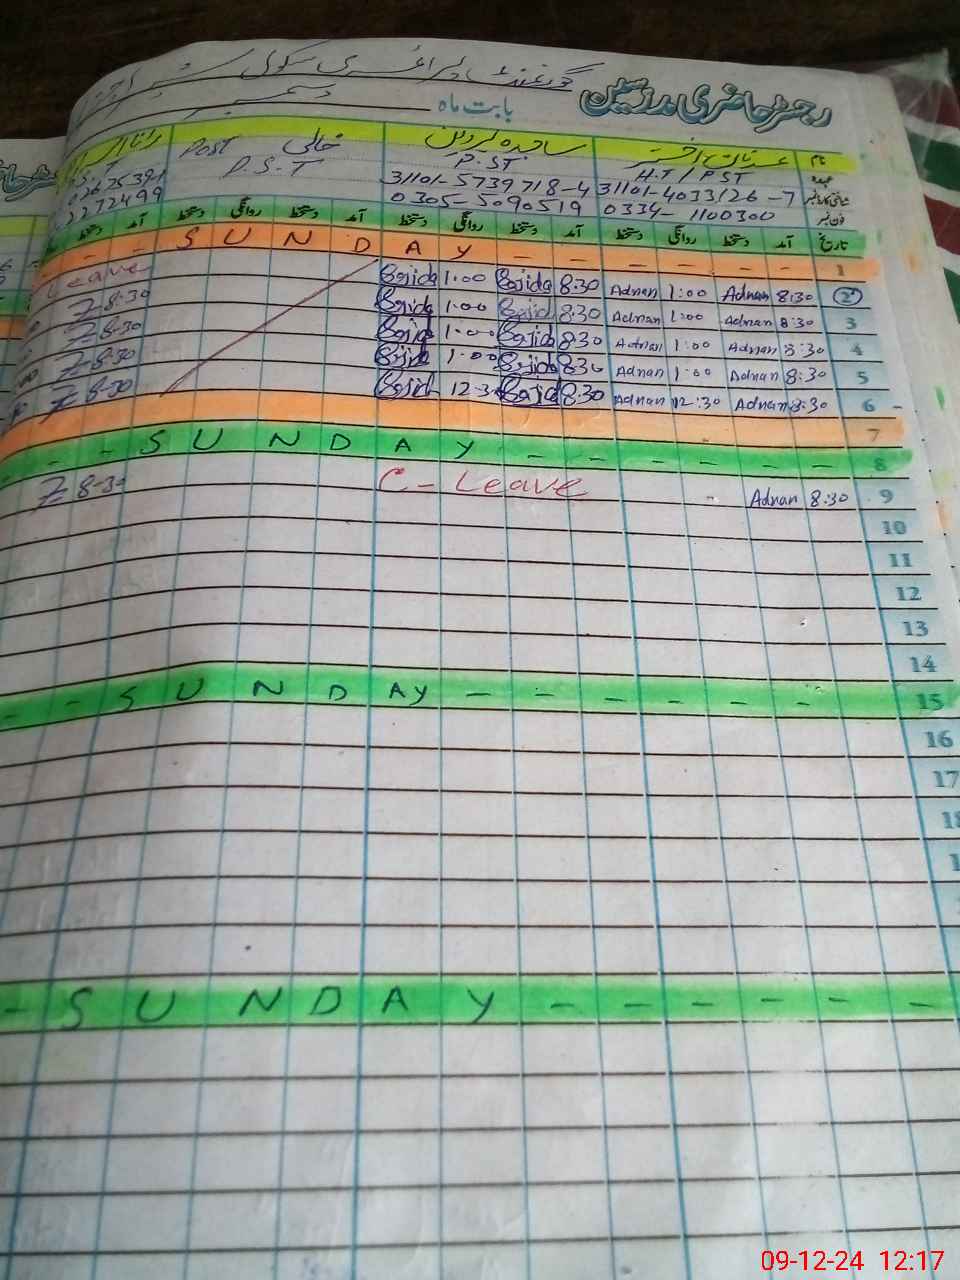 گورنمنٹ
رجسٹر حاضری مدرسین
بابت ماہ دسمبر
نام عدنان اختر ساجدہ پروین خالی Post
عہدہ H.T / PST P.ST P.S.T
شناختی کارڈ نمبر 31101-4033126-7 31101-5739718-4
فون نمبر 0334-1100300 0305-5090519 2272499
تاریخ آمد دستخط روانگی دستخط آمد دستخط روانگی دستخط آمد دستخط روانگی دستخط آمد دستخط
1 - - - - - - S U N D A Y
2 8:30 Adnan 1:00 Adnan 8:30 Sajida 1:00 Sajida Leave
3 8:30 Adnan 1:00 Adnan 8:30 Sajida 1:00 Sajida 8-30
4 8:30 Adnan 1:00 Adnan 8:30 Sajida 1:00 Sajida 8-30
5 8:30 Adnan 1:00 Adnan 8:30 Sajida 1:00 Sajida 8-30
6 8:30 Adnan 12:30 Adnan 8:30 Sajida 12:30 Sajida 8-30
7
8 - - - - - S U N D A Y - -
9 8:30 Adnan C-Leave 8-30
10
11
12
13
14
15 - - - - - S U N D A Y - -
16
17
18
- - - - - - S U N D A Y -
09-12-24 12:17